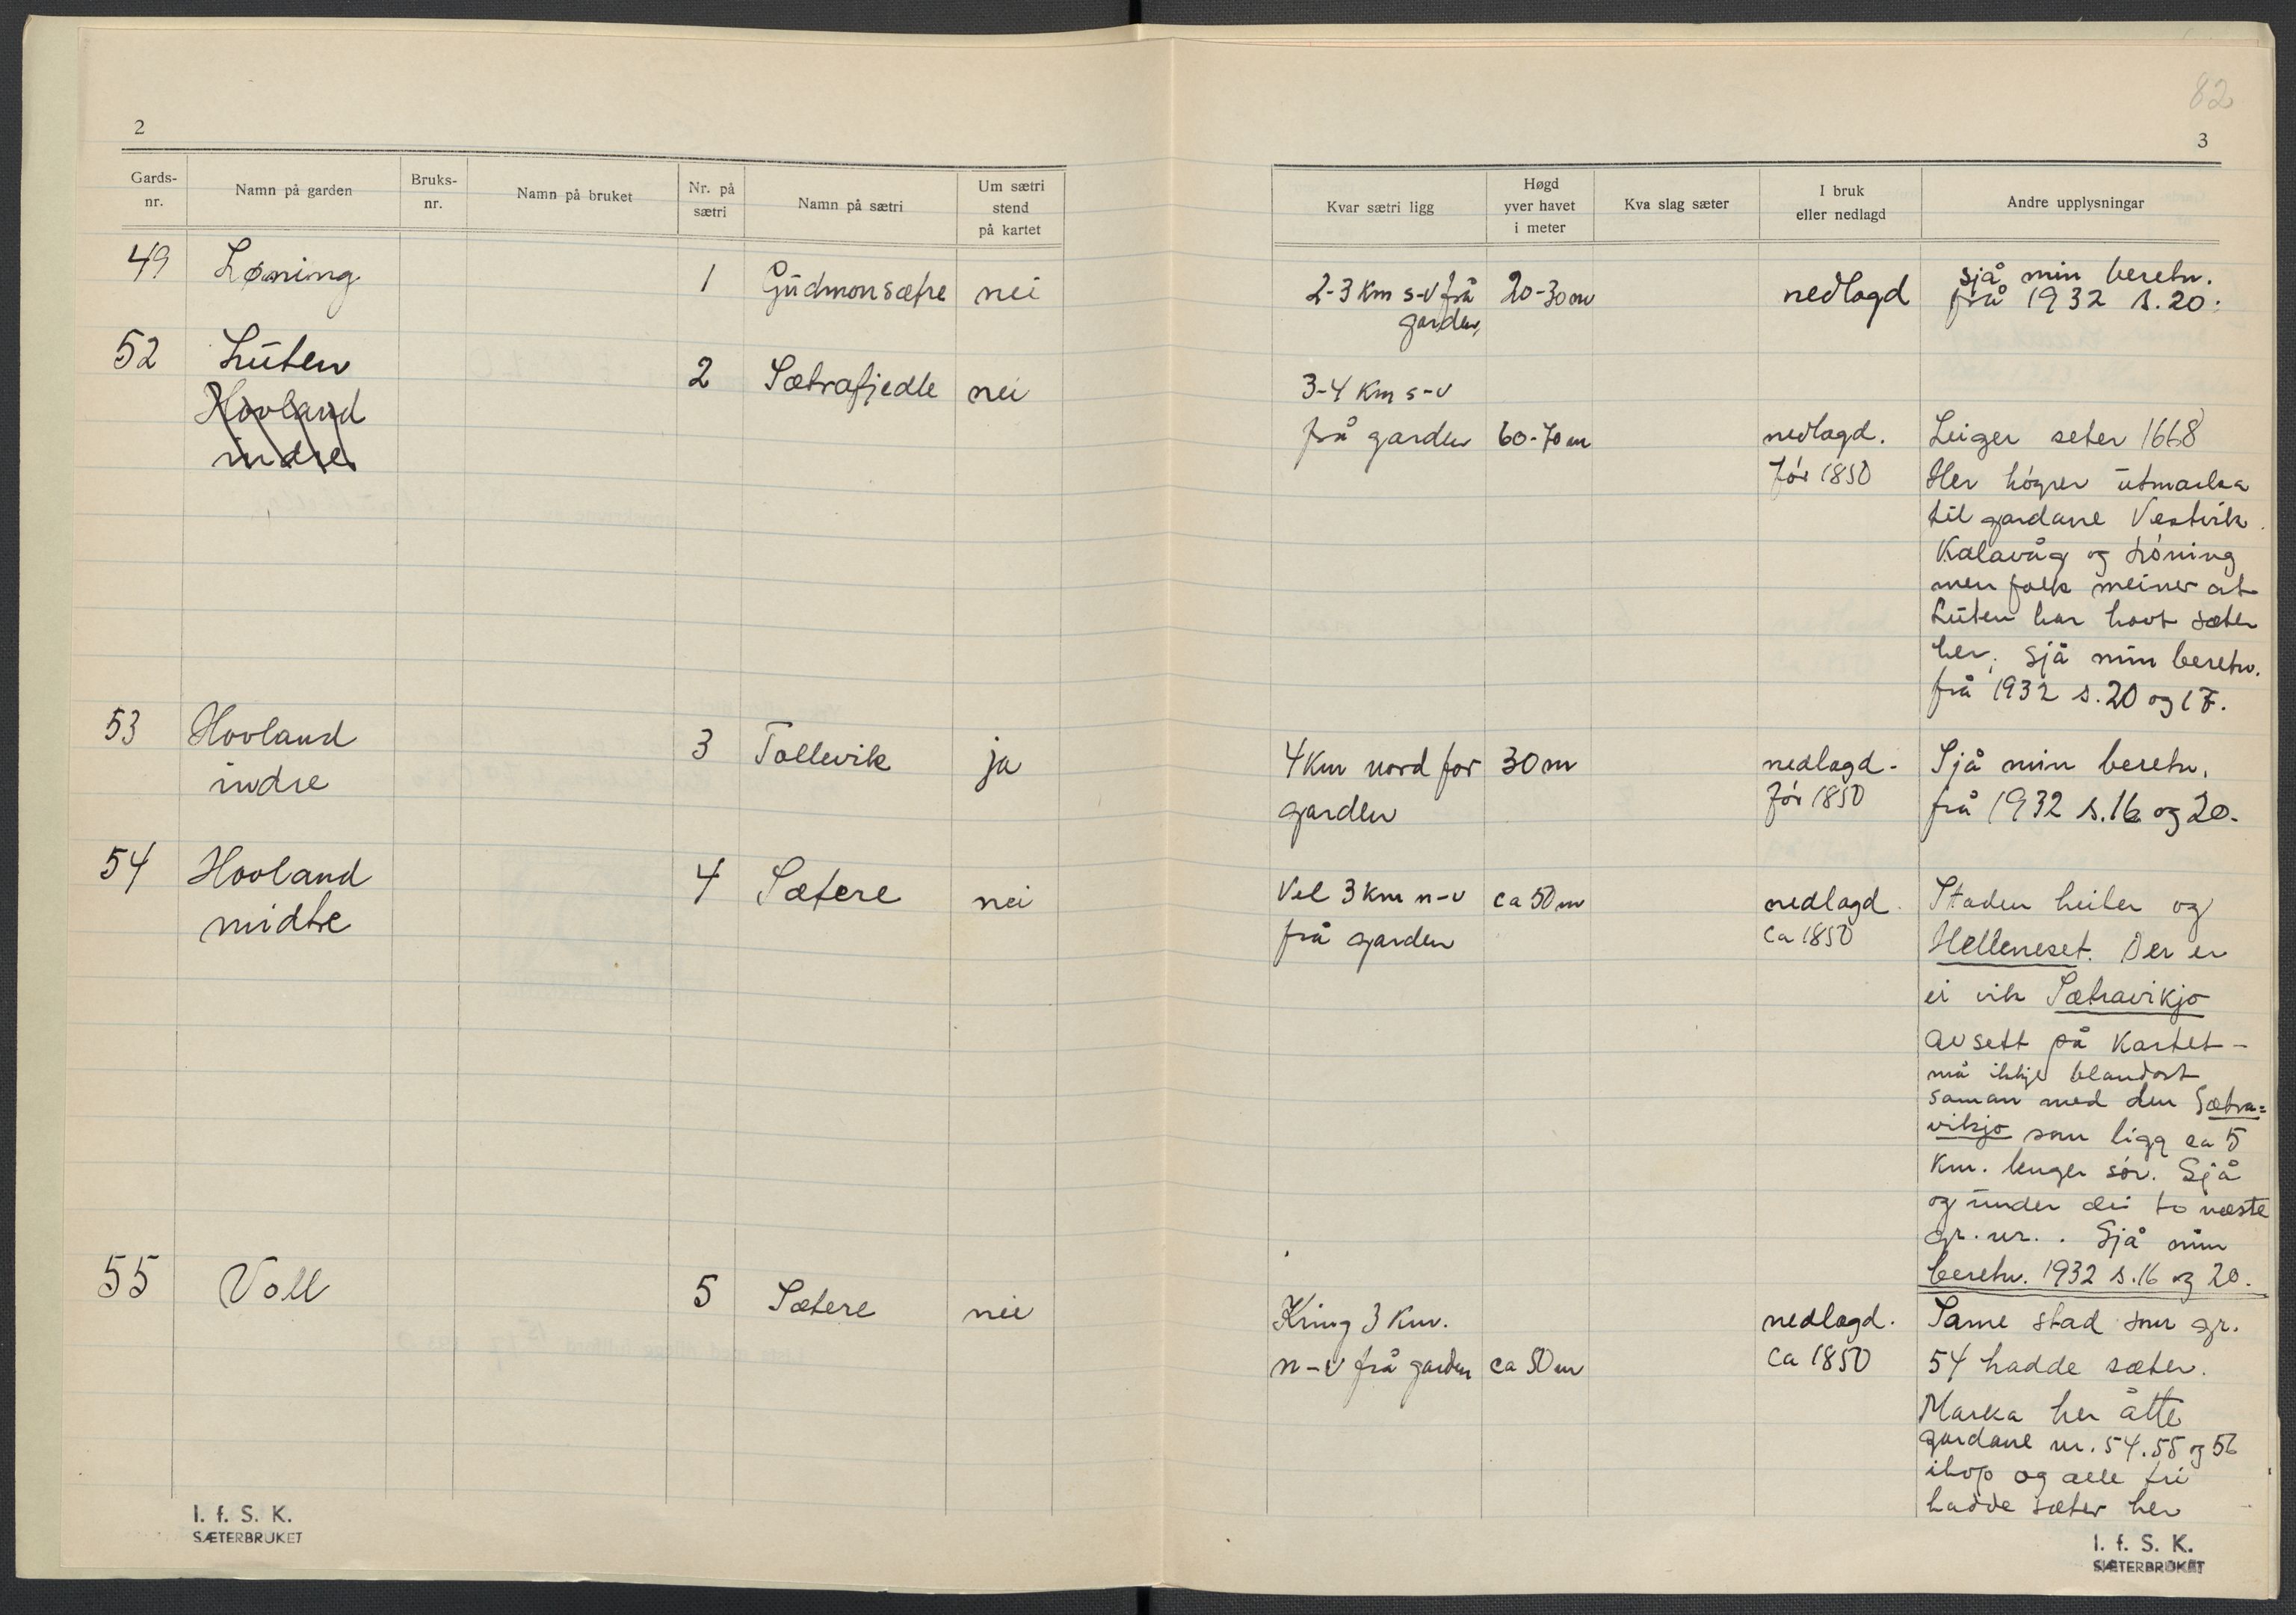 82
2
3
Gards-nr.
Namn på garden
Bruks-nr.
Namn på bruket
Nr. på sætri
Namn på sætri
Um sætri stend på kartet
Kvar sætri ligg
Høgd yver havet i meter
Kva slag sæter
I bruk eller nedlagd
Andre upplysningar
49 Løning 1 Gudmonsætre nei
2-3 Km s-v frå 20-30 m nedlagd sjå min beretn.
garden, frå 1932 s. 20.
52 Luten 2 Sætrafjedle nei
Hovland
indre
3-4 Km s-v
frå garden 60-70 m nedlagd. Leiger seter 1668
før 1850 Her høgrer utmarka
til gardane Vestvik.
Kalavåg og Løning
men folk meiner at
Luten har havt sæter
her; sjå min beretn.
frå 1932 s. 20 og 17.
53 Hovland 3 Tollevik ja
indre
4 Km nord for 30 m nedlagd- Sjå min beretn.
garden før 1850 frå 1932 s. 16 og 20.
54 Hovland 4 Sætere nei
midtre
Vel 3 Km n-v ca 50 m nedlagd. Staden heiter og
frå garden ca 1850 Helleneset. Der er
ei vik Sætravikjo
avsett på Kartet-
må ikkje blandast
saman med den Sætra=
vikjo som ligg ca 5
Km. lenger sør. Sjå
og under dei to næste
gr. nr.. Sjå min
beretn. 1932 s. 16 og 20.
55 Voll 5 Sætere nei
Kring 3 Km. nedlagd. Same stad som gr.
n-v frå garden ca 50 m ca 1850 54 hadde sæter.
Marka her åtte
gardane nr. 54. 55 og 56
ihop og alle tri
hadde sæter her
I. f. S. K.
SÆTERBRUKET
I. f. S. K.
SÆTERBRUKET